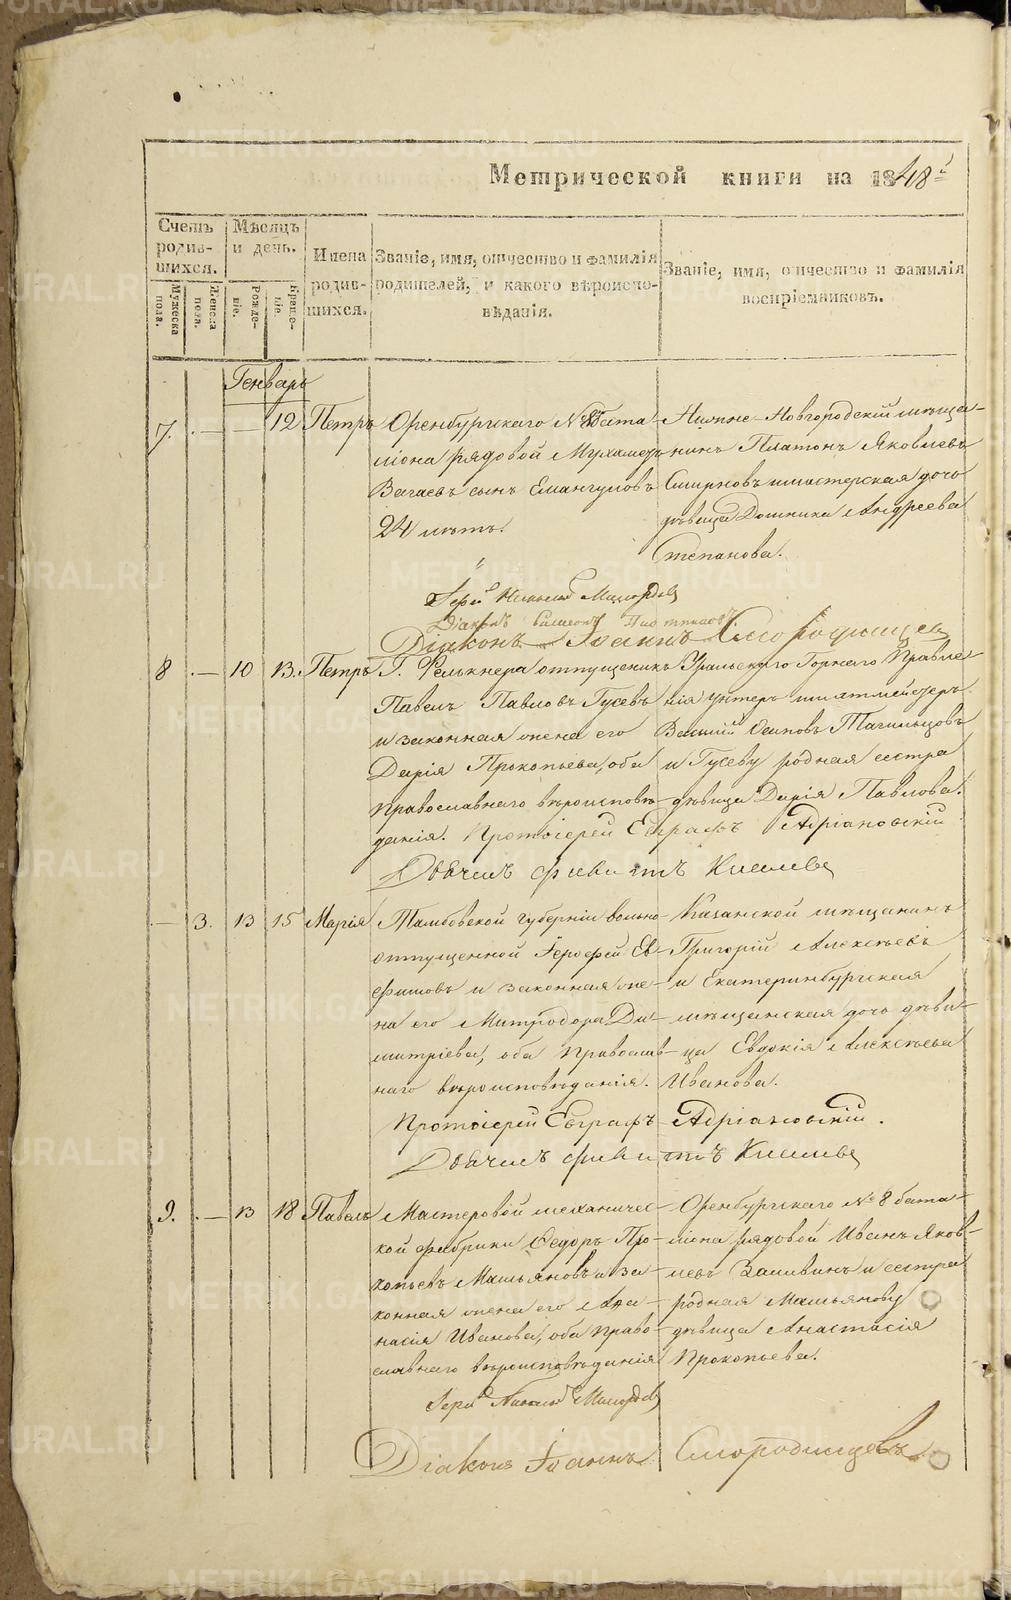 Метрической книги на 1848й
Счетъ родившихся.
Мѣсяцъ и день.
Имена родившихся.
Званіе, имя, отчество и фамилія родителей, и какого вѣроисповѣданія.
Званіе, имя, отчество и фамилія воспріемниковъ.
Мужеска пола.
Женска пола.
Рожденіе.
Крещеніе.
Генварь
7. — — 12 Петръ
Оренбургскаго № 8 бата-
ліона рядовой Мухамедъ
Вагаевъ сынъ Емангуловъ
24 лѣтъ.
Нижне-Новгородскій мѣща-
нинъ Платонъ Яковлевъ
Смирновъ и мастерская дочь
дѣвица Домника Андреева
Степанова.
Іерей
Діаконъ Симеонъ
Діаконъ Іоаннъ Смородинцевъ
8 — 10 13. Петръ
Г. Фелькнера отпущеникъ
Павелъ Павловъ Гусевъ
и законная жена его
Дарія Прокопьева, оба
православнаго вѣроисповѣ-
данія.
Уральскаго Горнаго Правле-
нія унтеръ шихтмейстеръ
Василій Осиповъ Тагильцовъ
и Гусеву родная сестра
дѣвица Дарія Павлова.
Протоіерей Евграфъ Адріановскій
Дьячекъ Киселевъ
— 3. 13 15 Марія
Тамбовской губерніи вольно-
отпущенной Іерофей Ев-
фимовъ и законная же-
на его Митродора Ди-
митріева, оба православ-
наго вѣроисповѣданія.
Казанской мѣщанинъ
Григорій Алексѣевъ
и Екатеринбургская
мѣщанская дочь дѣви-
ца Евдокія Алексѣева
Иванова.
Протоіерей Евграфъ Адріановскій.
Дьячекъ Киселевъ
9. — 13 18 Павелъ
Мастеровой механичес-
кой фабрики Ѳедоръ Про-
копьевъ Мальяновъ и за-
конная жена его Ана-
насія Иванова, оба право-
славнаго вѣроисповѣданія
Оренбургскаго № 8 бата-
ліона рядовой Иванъ Яков-
левъ Заливинъ и сестра
родная Мальянову
дѣвица Анастасія
Прокопьева.
Іерей
Діаконъ Іоаннъ Смородинцевъ.
METRIKI.GASO-URAL.RU